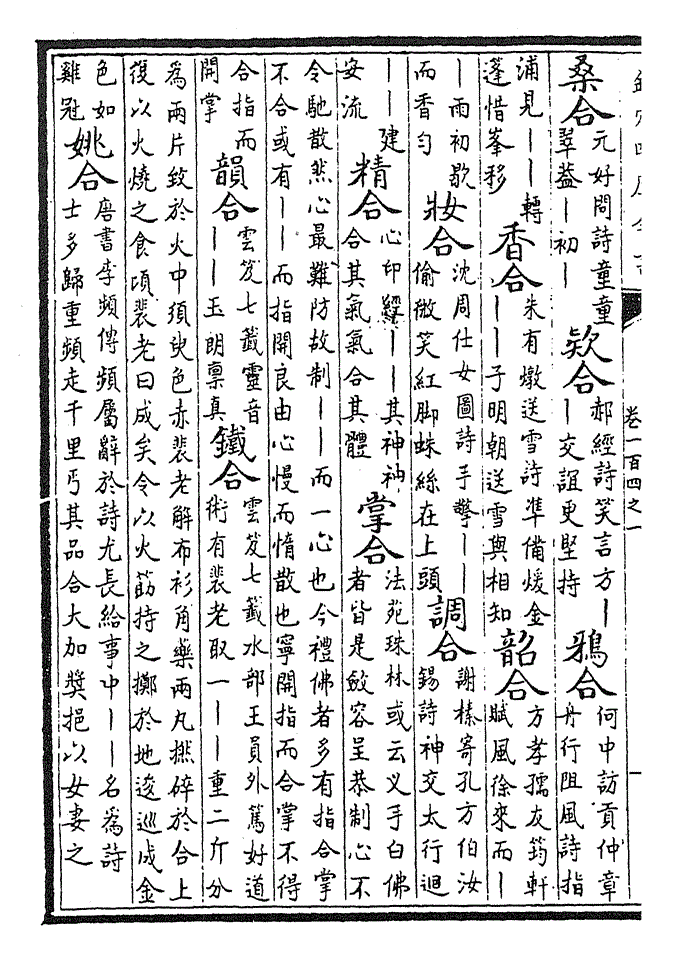 卷一百四之一
桑合 元好問詩童童翠葢丨初丨 欵合 郝經詩笑言方丨丨交誼更堅持 鴉合 何中訪貢仲章舟行阻風詩指
浦見丨丨轉蓬惜峯移 香合 朱有燉送雪詩準備煖金丨丨子明朝送雪與相知 韶合 方孝孺友筠軒賦風徐來而丨
丨雨初歇而香勻 妝合 沈周仕女圖詩手擎丨丨偷微笑紅脚蛛絲在上頭 調合 謝榛寄孔方伯汝錫詩神交太行迴
丨丨建安流 精合 心印經丨丨其神神合其氣氣合其體 掌合 法苑珠林或云义手白佛者皆是斂容呈恭制心不
令馳散然心最難防故制丨丨而一心也今禮佛者多有指合掌不合或有丨丨而指開良由心慢而惰散也寧開指而合掌不得
合指而開掌 韻合 雲笈七籤靈音丨丨玉朗稟真 鐵合 雲笈七籤水部王員外篤好道術有裴老取一丨丨重二斤分
為兩片致於火中須臾色赤裴老解布衫角藥兩丸撚碎於合上復以火燒之食頃裴老曰成矣令以火筋持之擲於地逡巡成金
色如雞冠 姚合 唐書李頻傳頻屬辭於詩尤長給事中丨丨名為詩士多歸重頻走千里丐其品合大加奬挹以女妻之